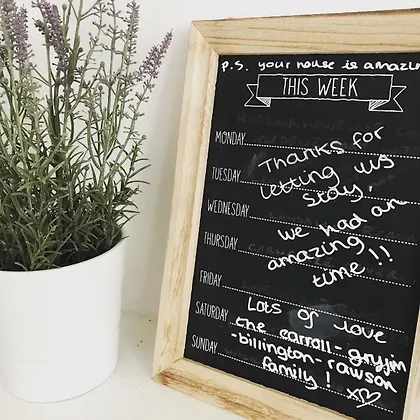 P.S. your house is amazin
THIS WEEK
MONDAY
Thanks for
TUESDAY
letting us
stay,
WEDNESDAY
we had an
THURSDAY
amazing
time!!
FRIDAY
Lots of love
SATURDAY
the carroll- gryjim
-billington-rawson
SUNDAY
family! x♡